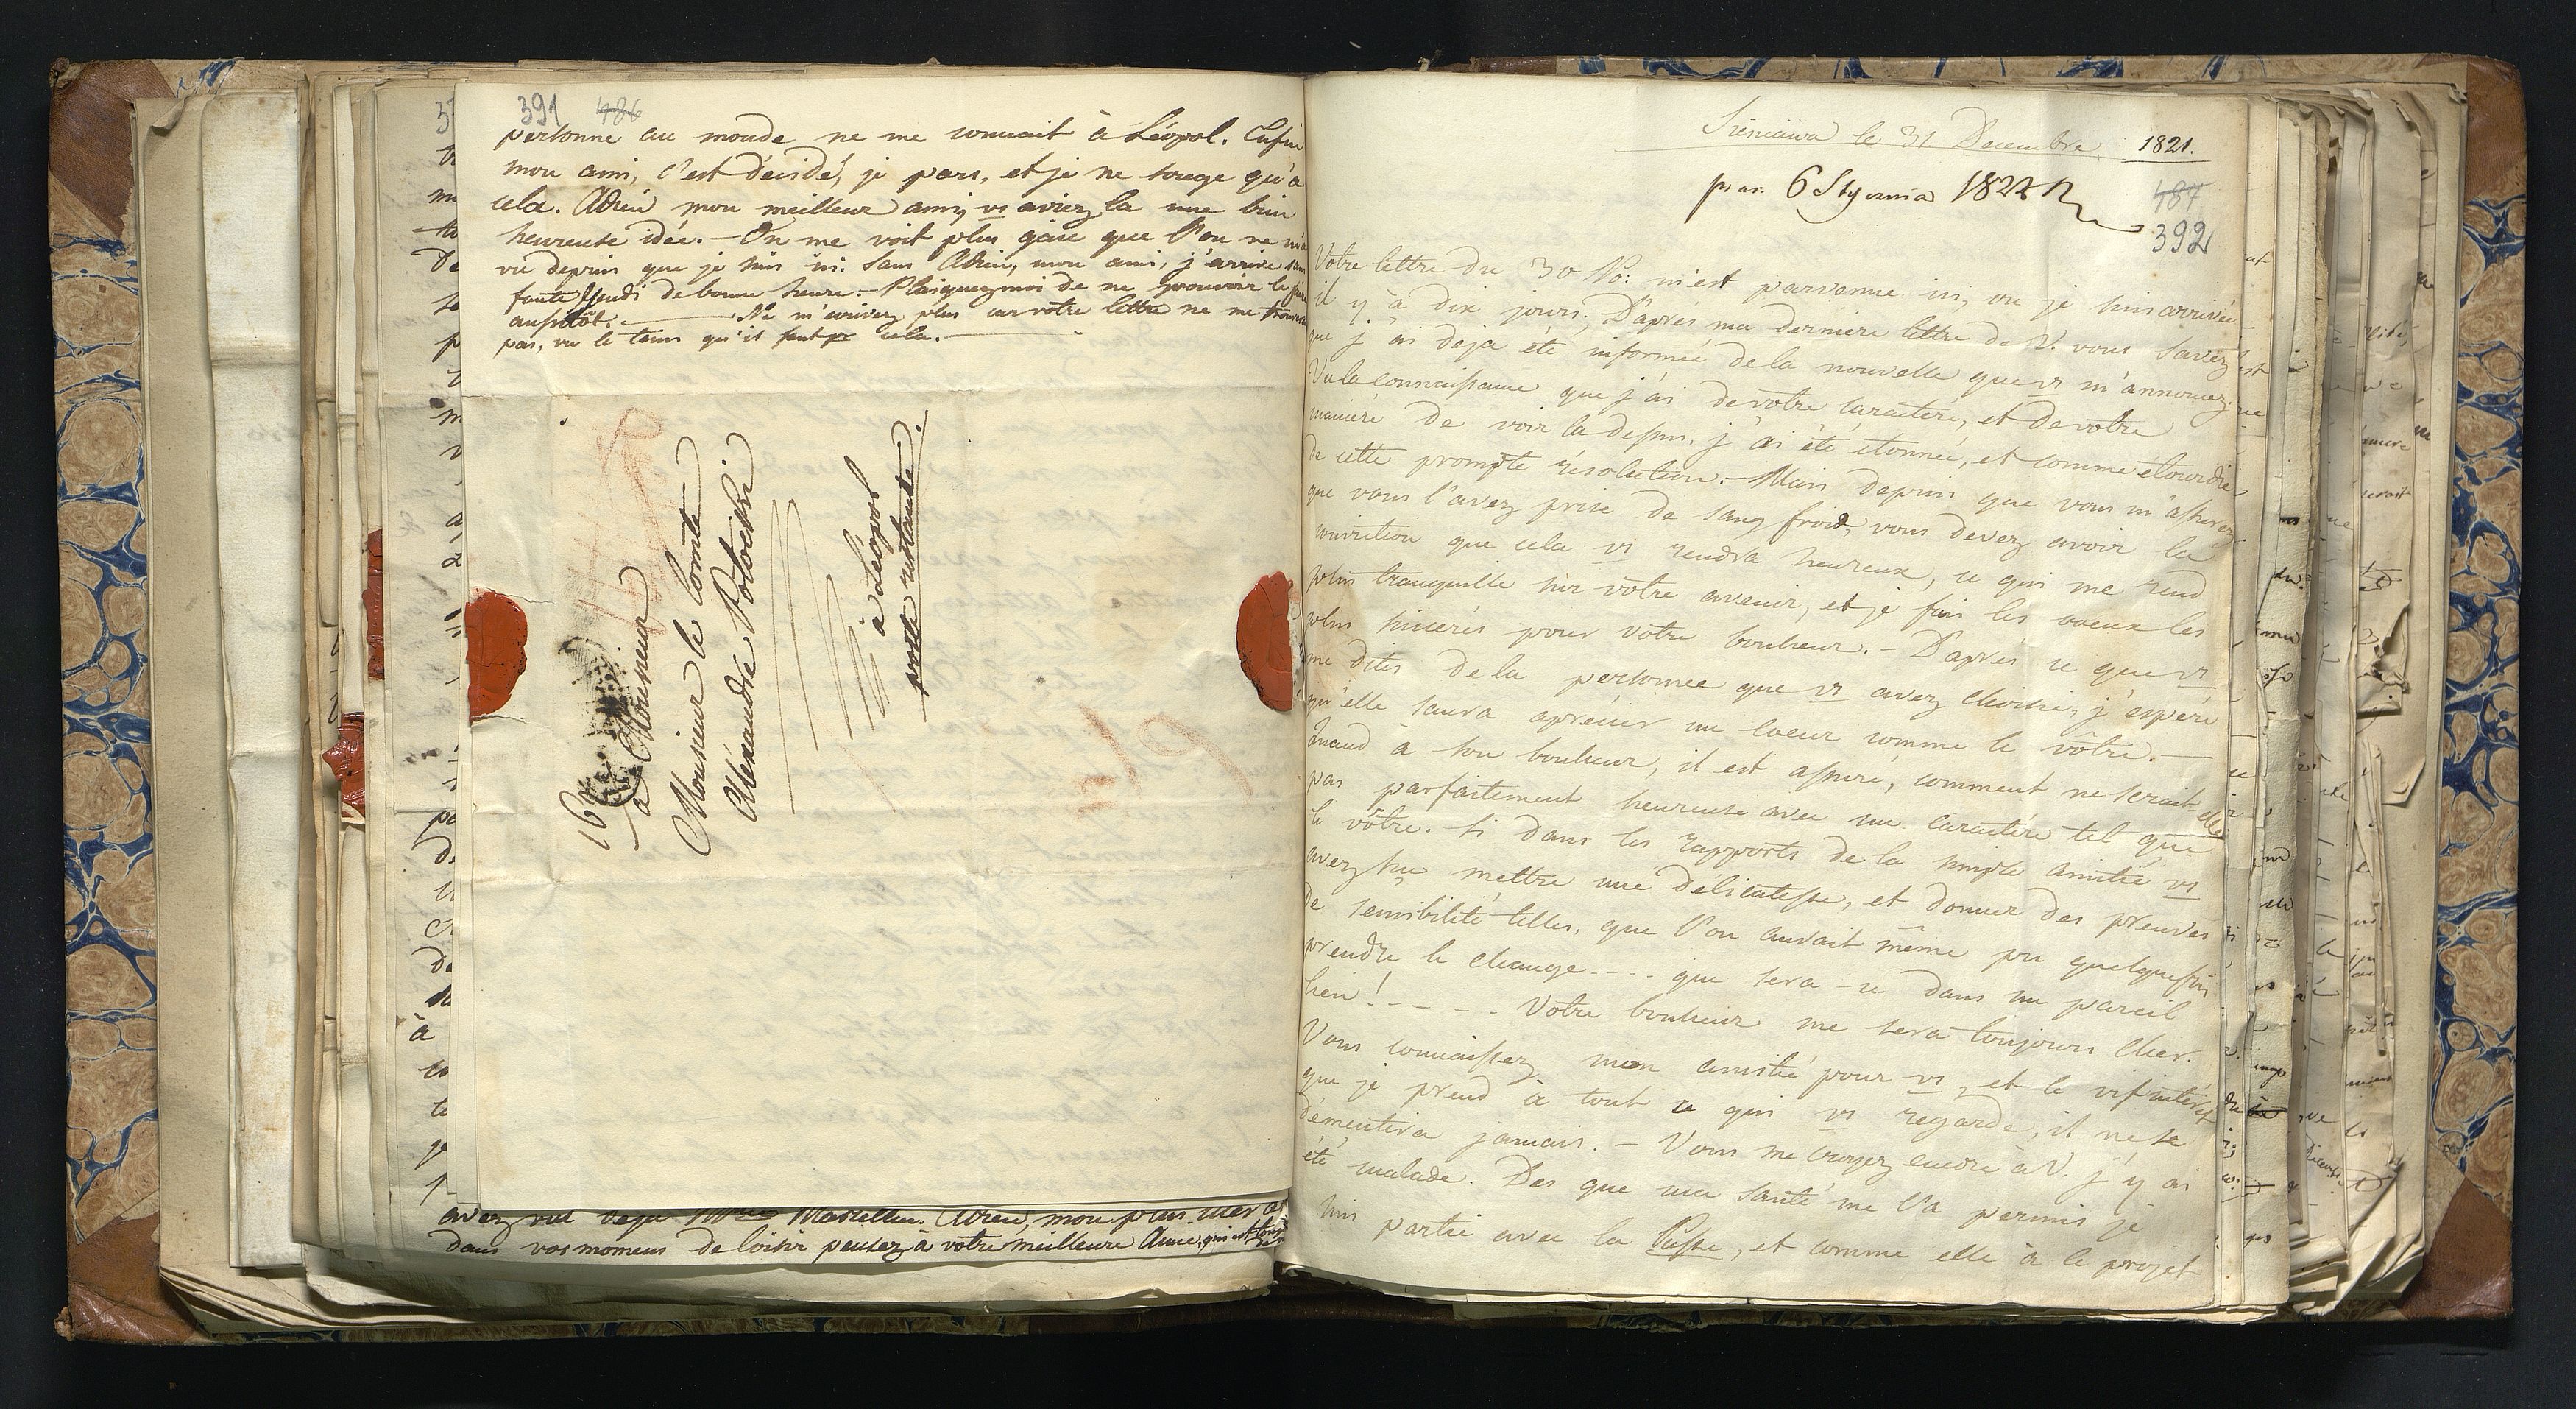 391 486
personne au monde ne me connait à Léopol. Enfin
mon ami, c'est décidé, je pars, et je ne songe qu'à
cela. Adieu mon meilleur ami, vs aviez là une bien
heureuse idée. – On me voit plus gaie que l'on ne m'a
vu depuis que je suis ici. Sans Adieu, mon ami, j'arrive sans
faute Jeudi de bonne heure. – Plaignez moi de ne pouvoir le
aussitôt. — Ne m'ecrivez plus car votre lettre ne me
pas, vu le tems qu'il faut pr cela. —
16
à Monsieur
Monsieur le Comte
Alexandre Potocki
à Léopol
poste restante.
avez vu deja Mme Adieu, mon plus cher
dans vos momens de loisir pensez à votre meilleure Amie, qui est
Sieniawa le 31 Decembre 1821.
6 Stycznia 1822
487
392
Votre lettre du 30 m'est parvenue ici, ou je suis arrivée
il y à dix jours. D'après ma derniere lettre de V. vous savez
que j'ai deja été informée de la nouvelle que vs m'annoncez.
Vu la connaissance que j'ai de votre caractère, et de votre
maniere de voir la dessus, j'ai été étonnée, et comme étourdie
de cette prompte résolution. – Mais depuis que vous m'assurez
que vous l'avez prise de sang froid, vous devez avoir la
conviction que cela vs rendra heureux, ce qui me rend
plus tranquille sur votre avenir, et je fais les voeux les
plus sincères pour votre bonheur. – D'après ce que vs
me dites de la personne que vs avez choisie, j'espère
qu'elle saura aprécier un coeur comme le vôtre. —
Quand à son bonheur, il est assuré, comment ne serait elle
pas parfaitement heureuse avec un caractère tel que
le vôtre. Si dans les rapports de la simple amitié vs
avez su mettre une délicatesse, et donner des preuves
de sensibilité telles, que l'on aurait même pu quelquefois
prendre le change - - - - que sera-ce dans un pareil
lien! - - - - Votre bonheur me sera toujours cher.
Vous connaissez mon amitié pour vs, et le vif intérêt
que je prend à tout ce qui vs regarde, il ne se
démentira jamais. – Vous me croyez encore à V. j'y ai
été malade. Des que ma santé me l'a permis je
suis partie avec la Psse, et comme elle à le projet